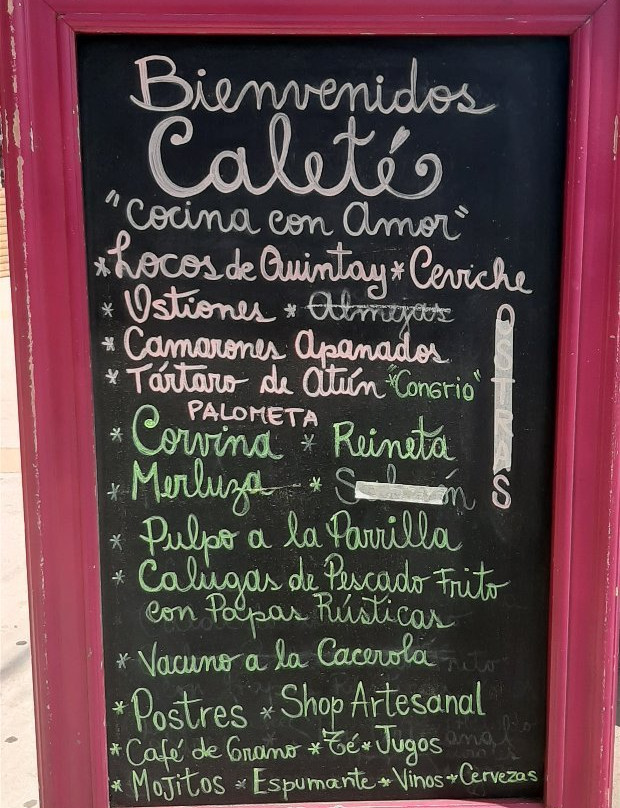 Bienvenidos
Caleté
"Cocina con Amor"
*Locos de Quintay * Ceviche
* Ostiones * Almejas
* Camarones Apanados
* Tártaro de Atún *"Congrio"
PALOMETA
* Corvina * Reineta
* Merluza *
* Pulpo a la Parrilla
* Calugas de Pescado Frito
con Papas Rústicas
* Vacuno a la Cacerola
* Postres * Shop Artesanal
* Café de Grano * Té * Jugos
* Mojitos * Espumante * Vinos * Cervezas
OSTRAS